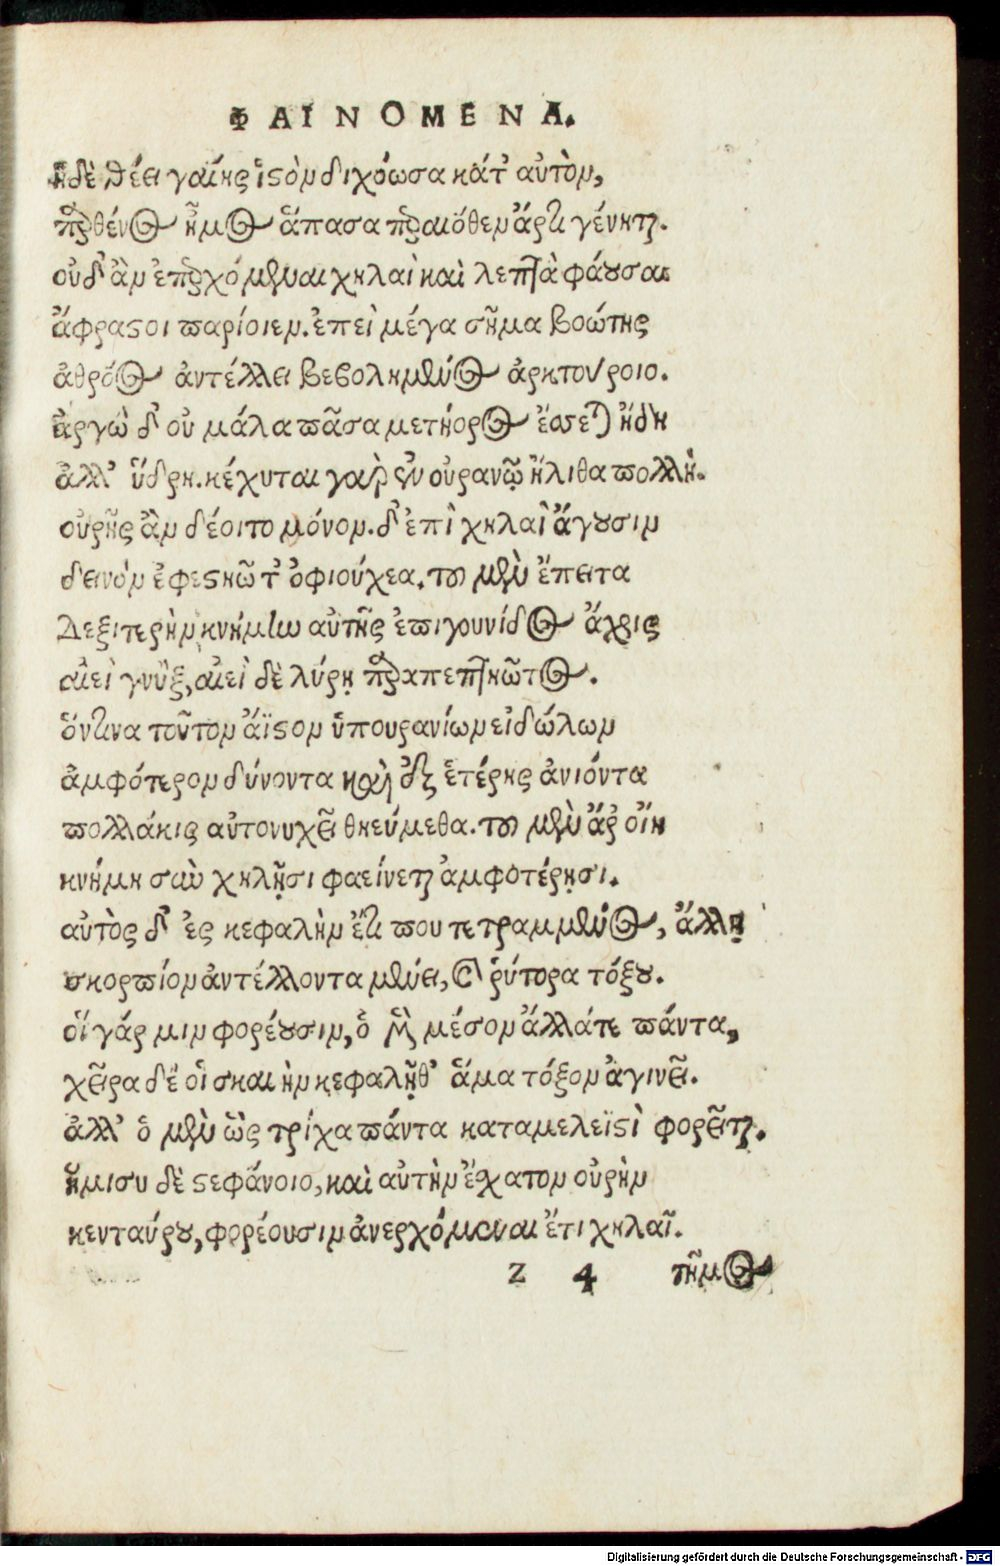 ΦΑΙΝΟΜΕΝΑ.
ἡδὲ θέει γαίης ἱστὸν διχόωσα κατ᾽ αὐτὸν,
παρθένος ἦμος ἅπασα περαιόθεν ἄρτι γένηται.
οὐδ᾽ ἂν ἐπερχόμεναι χηλαὶ καὶ λεπτὰ φάουσαι
ἄφραστοι παρίοιεν. ἐπεὶ μέγα σῆμα βοώτης
ἀθρόος ἀντέλλει βεβολημένος ἀρκτούροιο.
ἀργὼ δ᾽ οὐ μάλα πᾶσα μετήορος ἔσσεται ἤδη
ἀλλ᾽ ὕδρη. κέχυται γὰρ ἐν οὐρανῷ ἤλιθα πολλὴ.
οὐρῆς ἂν δέοιτο μόνον. δ᾽ ἐπὶ χηλαὶ ἄγουσιν
δεινὸν ἐφεστηῶτ᾽ ὀφιούχεα. τοῦ μὲν ἔπειτα
Δεξιτερὴν κνήμην αὐτῆς ἐπιγουνίδος ἄχρις
αἰεὶ γνὺξ, αἰεὶ δὲ λύρῃ παραπεπτηῶτος.
ὅντινα τοῦτον ἄϊστον ὑπουρανίων εἰδώλων
ἀμφότερον δύνοντα καὶ ἐξ ἑτέρης ἀνιόντα
πολλάκις αὐτονυχεῖ θηεύμεθα. τοῦ μὲν ἄρ οἴη
κνήμη σὺν χηλῇσι φαείνεται ἀμφοτέρῃσι.
αὐτὸς δ᾽ ἐς κεφαλὴν ἔτι που τετραμμένος, ἄλλῃ
σκορπίον ἀντέλλοντα μένει, καὶ ῥύτορα τόξου.
οἵ γάρ μιν φορέουσιν, ὁ μὲν μέσον ἄλλάτε πάντα,
χεῖρα δέ οἱ σκαιὴν κεφαλῇθ᾽ ἅμα τόξον ἀγινεῖ.
ἀλλ᾽ ὁ μὲν ὣς τρίχα πάντα καταμελεϊστὶ φορεῖται.
ἥμισυ δὲ στεφάνοιο, καὶ αὐτὴν ἔσχατον οὐρὴν
κενταύρου, φορέουσιν ἀνερχόμεναι ἔτι χηλαῖ.
z 4 τῆμος
Digitalisierung gefördert durch die Deutsche Forschungsgemeinschaft - DFG